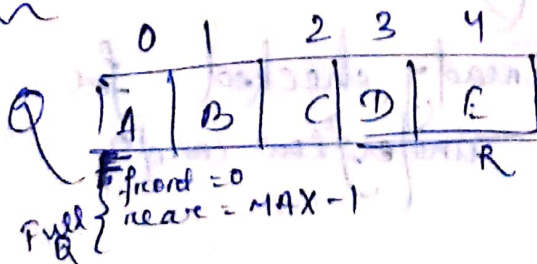 0 1 2 3 4
Q A B C D E
F R
Full Q { front = 0
rear = MAX - 1